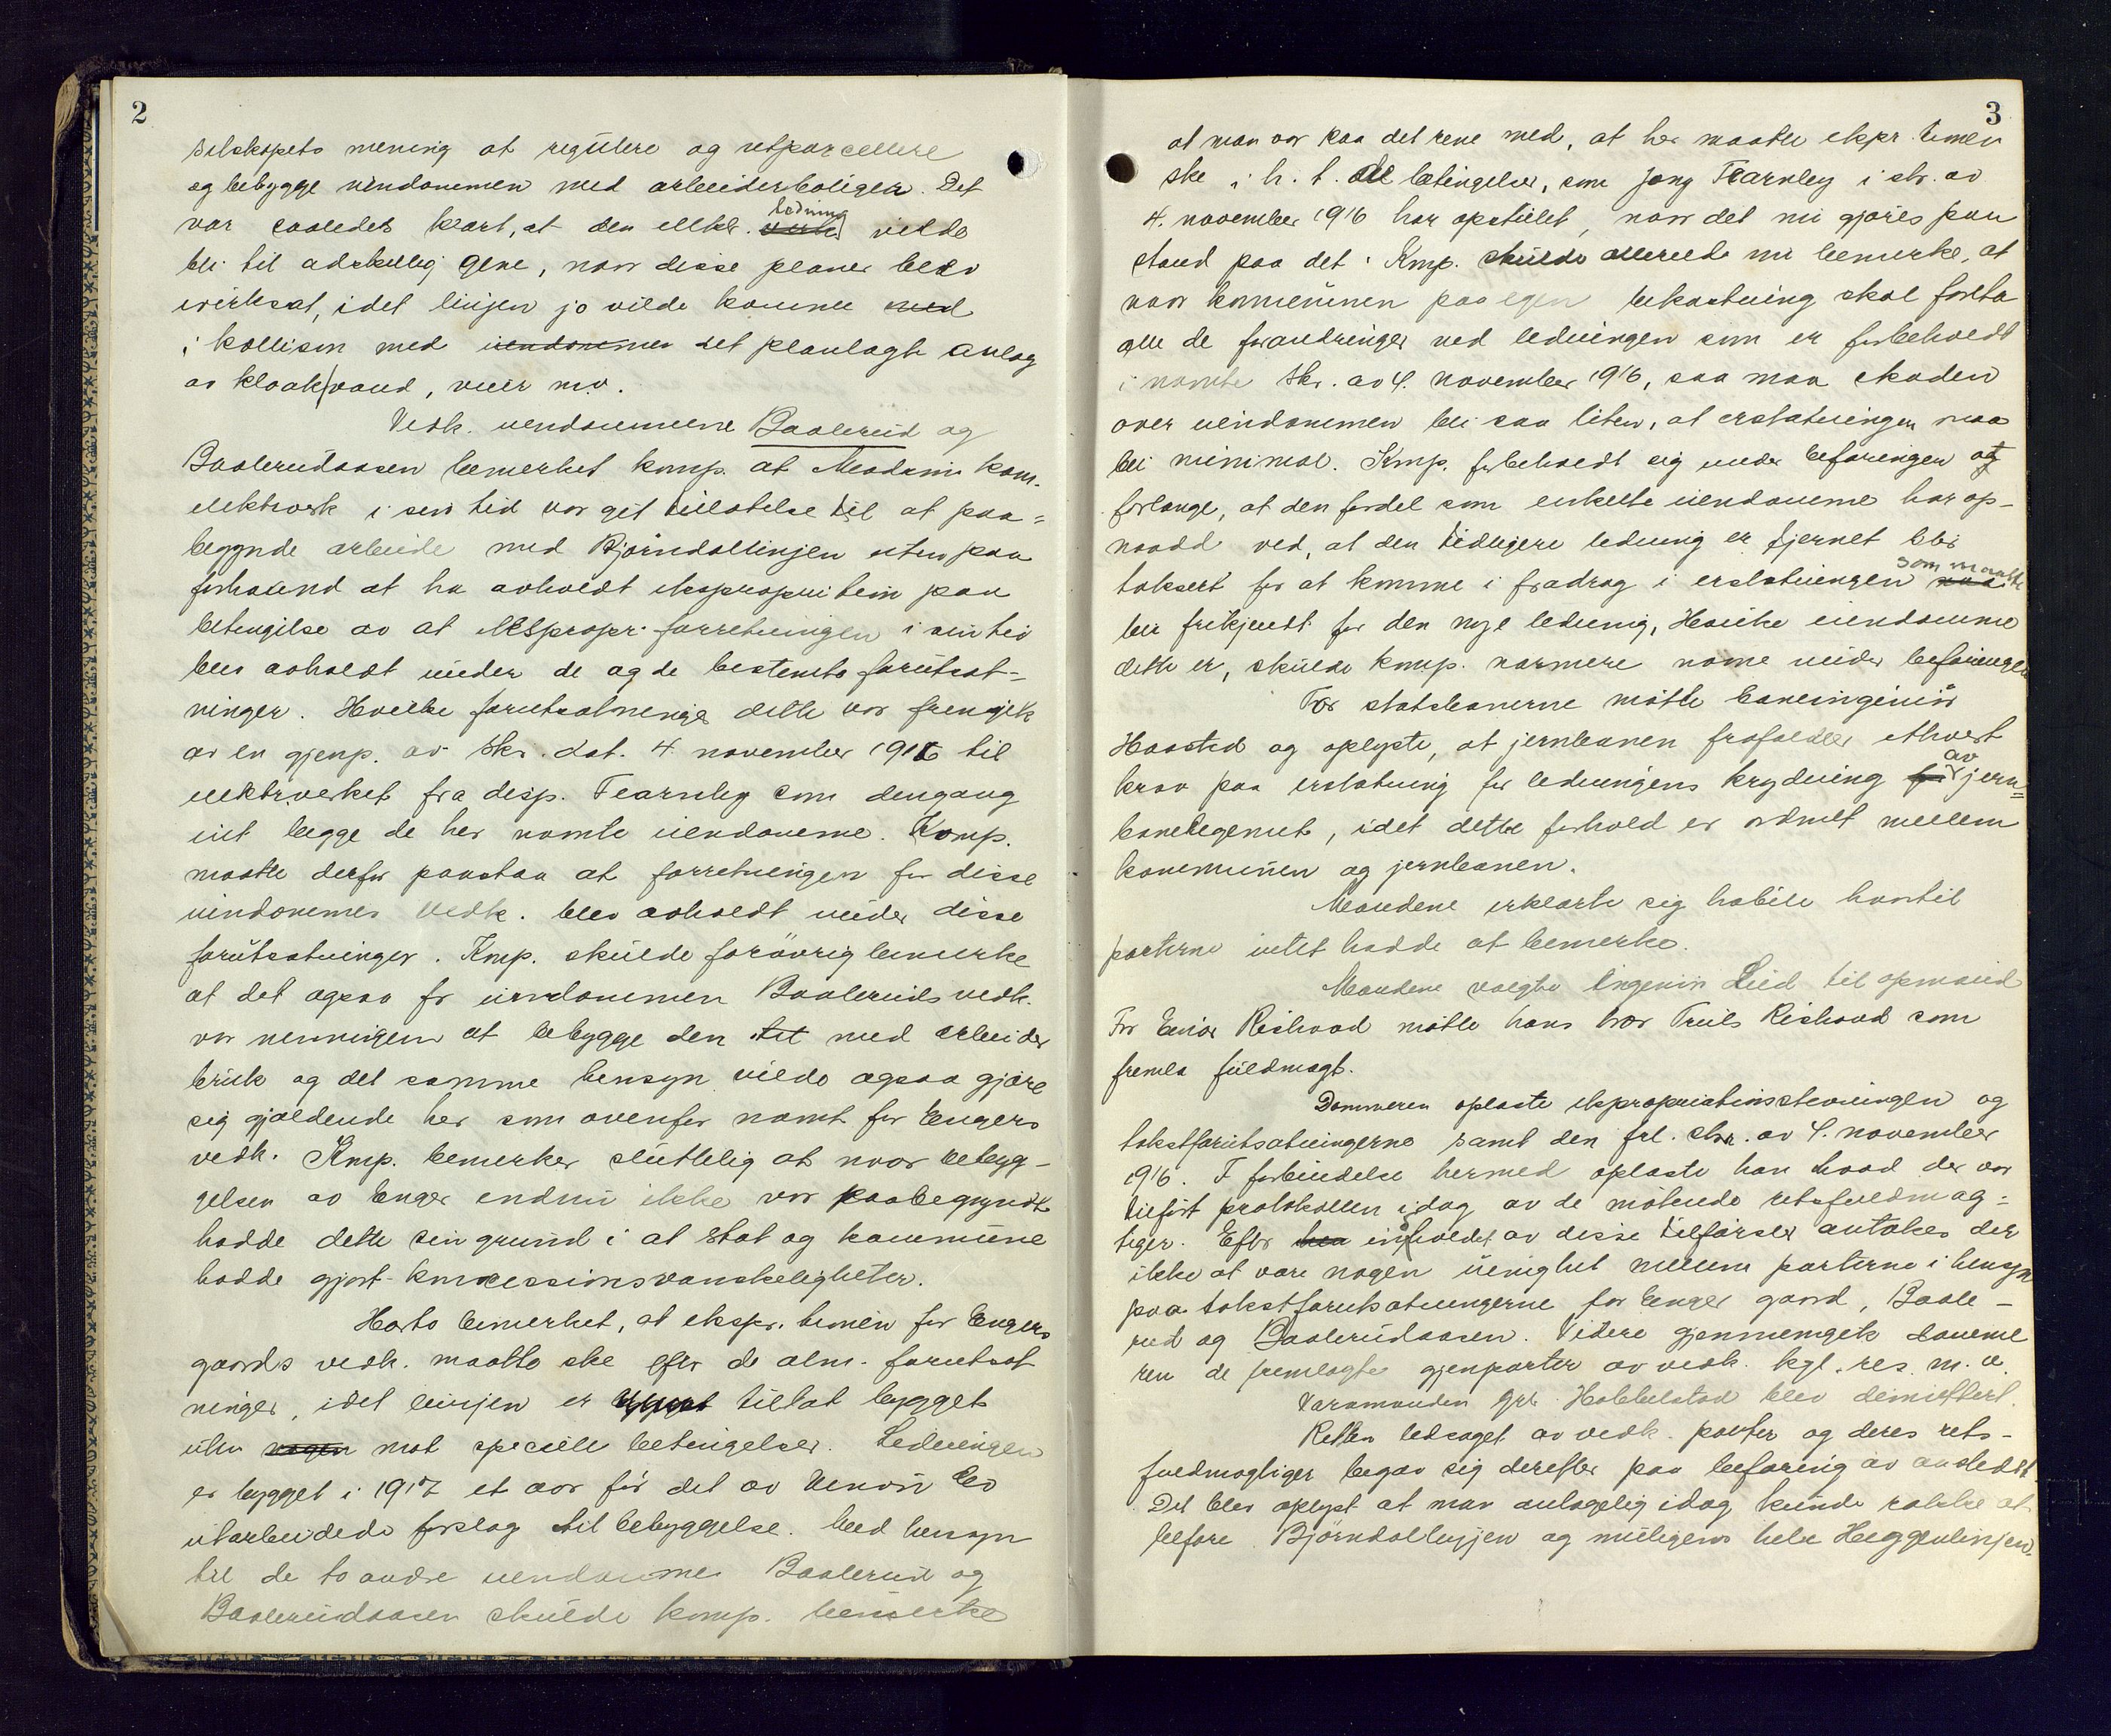 2
selskapets mening at regulere og utparcellere
og bebygge eiendommen med arbeiderboliger. Det
var saaledes klart, at den elktr. ledning vilde
bli til adskillig gene, naar disse planer blev
iverksat, idet linjen jo vilde komme
i kollision med eiendommen det planlagte anlæg
av kloak, vand, veier m.v.
Vedk. eiendommene Baalerud og
Baalerudaasen bemerket komp. at Modum kom.
elektrverk i sin tid var git tillatelse til at paa=
begynde arbeide med Bjørndallinjen uten paa
forhaand at ha avholdt ekspropriation paa
betingelse av at ekspropr. forretningen i sin tid
blev avholdt under de og de bestemte forutsæt=
ninger. Hvilke forutsætninger dette var fremgik
av en gjenp. av skr. dat. 4 november 1916 til
elektr.verket fra disp. Fearnley som dengang
eiet begge de her nævnte eiendomme. Komp.
maatte derfor paastaa at forretningen for disse
eiendommes vedk. blev avholdt under disse
forutsætninger. Kmp. skulde forøvrig bemerke
at det ogsaa for eiendommen Baaleruds vedk.
var meningen at bebygge den tit med arbeider
bruk og det samme hensyn vilde ogsaa gjøre
sig gjældende her som ovenfor nævnt for Engers
vedk. Kmp. bemerker sluttelig at naar bebyg-
gelsen av Enger endnu ikke var paabegyndt
hadde dette sin grund i at stat og kommune
hadde gjort koncessionsvanskeligheter.
Harto bemerket, at ekspr. temen for Engers
gaards vedk. maatte ske efter de alm. forutsæt
ninger, idet linjen er tillat bygget
uten nogen mot specielle betingelser. Ledningen
er bygget i 1917 et aar før det av Union Co
utarbeidede forslag til bebyggelse. Med hensyn
til de to andre eiendommer Baalerud og
Baalerudaasen skulde komp. bemerke
3
at man var paa det rene med, at her maatte ekspr. temen
ske i h. t. de betingelser, som Jong Fearnley i skr. av
4. november 1916 har opstillet, naar det nu gjøres paa
stand paa det. Kmp. skulde allerede nu bemerke, at
naar kommunen paa egen bekostning skal foreta
alle de forandringer ved ledningen som er forbeholdt
i nævnte skr. av 4. november 1916, saa maa skaden
over eiendommen bli saa liten, at erstatningen maa
bli minimal. Kmp. forbeholdt sig under befaringen at
forlange, at den fordel som enkelte eiendomme har op-
naadd ved, at den tidligere ledning er fjernet blir
taksert for at komme i fradrag i erstatningen som maatte
bli frikjendt for den nye ledning, Hvilke eiendomme
dette er, skulde kmp. nærmere nævne under befaringen
For statsbanerne møtte baneingeniør
Haastad og oplyste, at jernbanen frafalder ethvert
krav paa erstatning for ledningens krydsning av jern=
banelegemet, idet dette forhold er ordnet mellem
kommunen og jernbanen.
Mændene erklærte sig habile hvortil
parterne intet hadde at bemerke.
Mændene valgte Ingeniør Lied til opmand
For Einar Rishovd møtte hans bror Truls Rishovd som
fremla fuldmagt.
Dommeren oplæste ekspropriationsstevningen og
takstforutsætningerne samt den frl. skr. av 4. november
1916. I forbindelse hermed oplæste han hvad der var
tilført protokollen idag av de møtende retsfuldmæg=
tiger. Efter indholdet av disse tilførsler antokes der
ikke at være nogen uenighet mellem parterne i hensyn
paa takstforutsætningerne for Enger gaard, Baale-
rud og Baalerudaasen. Videre gjennemgik domme
ren de fremlagte gjenparter av vedk. kgl. res. m. v.
Varamanden grb. Hobbelstad blev dimittert.
Retten ledsaget av vedk. parter og deres rets-
fuldmægtiger begav sig derefter paa befaring av anlegget
Det blev oplyst at man antagelig idag kunde række at
befare Bjørndallinjen og muligens hele Heggenlinjen.